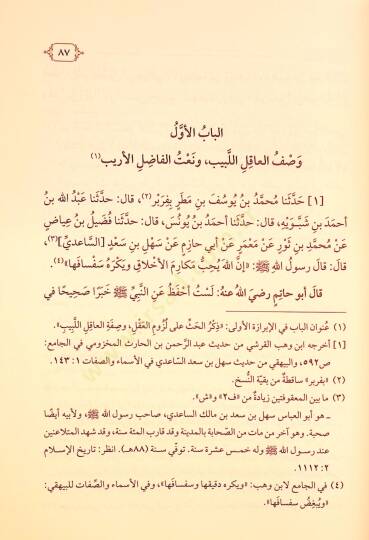 ٨٧
البابُ الأوَّلُ
وَصْفُ العاقِلِ اللَّبيب، ونَعْتُ الفاضِلِ الأريب(١)
[١] حَدَّثَنا مُحمَّدُ بنُ يُوسُفَ بنِ مَطَرٍ بِفِرَبْرَ(٢)، قال: حدَّثَنا عَبْدُ الله بنُ
أحمدَ بنِ شَبُّوَيْهِ، قال: حدَّثَنا أحمدُ بنُ يُونُسَ، قال: حدَّثَنا فُضَيلُ بنُ عِياضٍ
عَنْ مُحمدِ بنِ ثَوْرٍ عَنْ مَعْمَرٍ عَنْ أبي حازِمٍ عَنْ سَهْلِ بنِ سَعْدٍ [السَّاعديِّ](٣)،
قالَ: قالَ رسولُ اللهِ ﷺ: «إنَّ اللهَ يُحِبُّ مَكارِمَ الأخْلاقِ ويَكْرَهُ سَفْسافَها»(٤).
قالَ أبو حاتِمٍ رضيَ اللهُ عنهُ: لَسْتُ أحْفَظُ عَنِ النَّبيِّ ﷺ خَبَرًا صَحِيحًا في
(١) عُنوان الباب في الإبرازة الأولى: «ذِكْرُ الحَثِّ على لُزُومِ العَقْلِ، وصِفَةِ العاقِلِ اللَّبيبِ».
[١] أخرجه ابن وهب القرشي من حديث عبد الرَّحمن بن الحارث المخزومي في الجامع:
ص٥٩٢، والبيهقي من حديث سهل بن سعد السَّاعدي في الأسماء والصفات ١: ١٤٣.
(٢) «بفربر» ساقطةٌ من بقيّة النُّسَخ.
(٣) ما بين المعقوفتين زيادةٌ من «ف٢» و«ش».
- هو أبو العباس سهل بن سعد بن مالك الساعدي، صاحب رسول الله ﷺ، ولأبيه أيضًا
صحبة. وهو آخر من مات من الصّحابة بالمدينة وقد قارب المئة سنة، وقد شهد المتلاعنين
عند رسول الله ﷺ وله خمس عشرة سنة. توفّي سنة (٨٨هـ). انظر: تاريخ الإسلام
٢: ١١١٢.
(٤) في الجامع لابن وهب: «ويكره دقيقها وسفسافَها»، وفي الأسماء والصِّفات للبيهقي:
«ويُبْغِضُ سفسافَها».